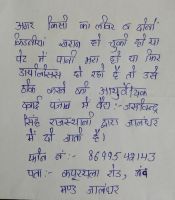 अगर किसी का लीवर व दोनों
किडनीयां खराब हो चुकी हों या
पेट में पानी भरा हो या फिर
डायलिसिस हो रही है तो उसे
ठीक करने की आयुर्वेदिक
दवाई पंजाब में वैद्य:- जसविन्द्र
सिंह राजस्थानी द्वारा जालंधर
में दी जाती है।
फोन नं :- 8699542143
पता:- कपूरथला रोड,
मण्ड जालंधर